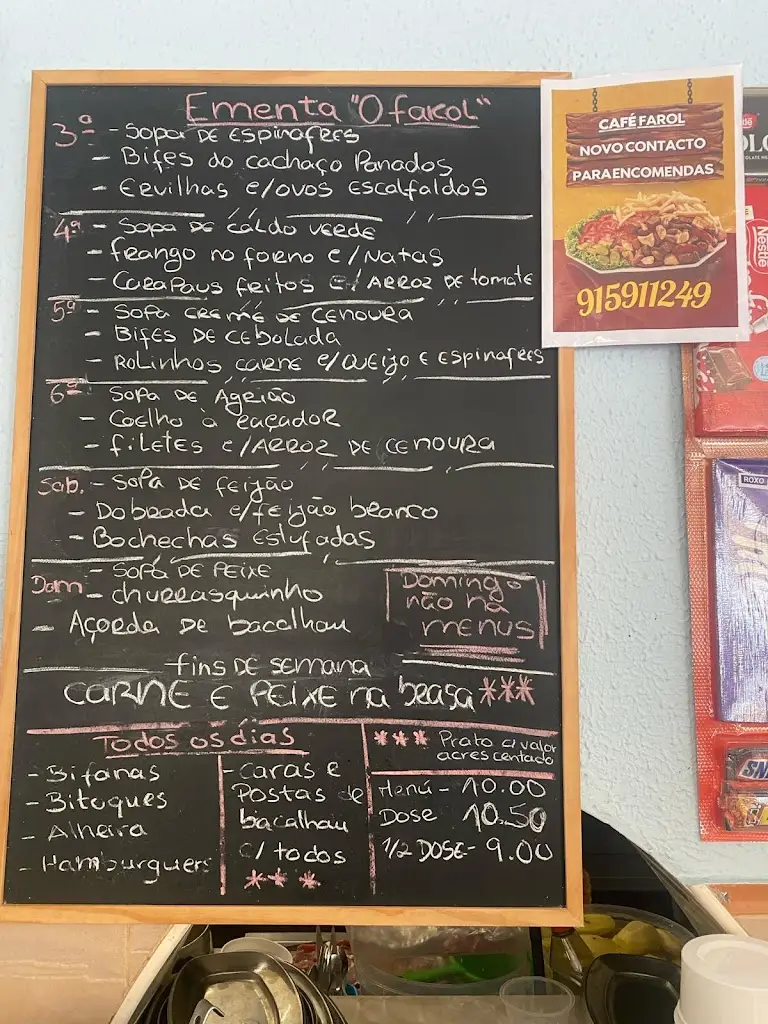 Ementa "O farol"
3ª - Sopa de Espinafres
- Bifes do cachaço Panados
- Ervilhas c/ovos escalfaldos
4ª - Sopa de caldo verde
- frango no forno c/Natas
- Carapaus fritos c/Arroz de tomate
5ª - Sopa creme de cenoura
- Bifes de cebolada
- Rolinhos carne c/queijo e espinafres
6ª - Sopa de Agrião
- Coelho à caçador
- filetes c/Arroz de cenoura
Sab. - Sopa de feijão
- Dobrada c/feijão branco
- Bochechas Estufadas
Dom - Sopa de Peixe
- churrasquinho
- Açorda de bacalhau
Domingo
não há
menus
fins de semana
Carne e Peixe na brasa ***
Todos os dias
- Bifanas
- Bitoques
- Alheira
- Hamburguer
- Caras e
Postas de
bacalhau
c/ todos
***
*** Prato c/ valor
acrescentado
Menú - 10.00
Dose 10.50
1/2 Dose - 9.00
CAFÉ FAROL
NOVO CONTACTO
PARA ENCOMENDAS
915911249
Nestlé
ROXO